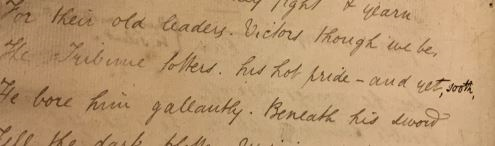 fight & yearn
For their old leaders. Victors though we be,
The Tribune totters. his hot pride – and yet, sooth,
He bore him gallantly. Beneath his sword
the dark